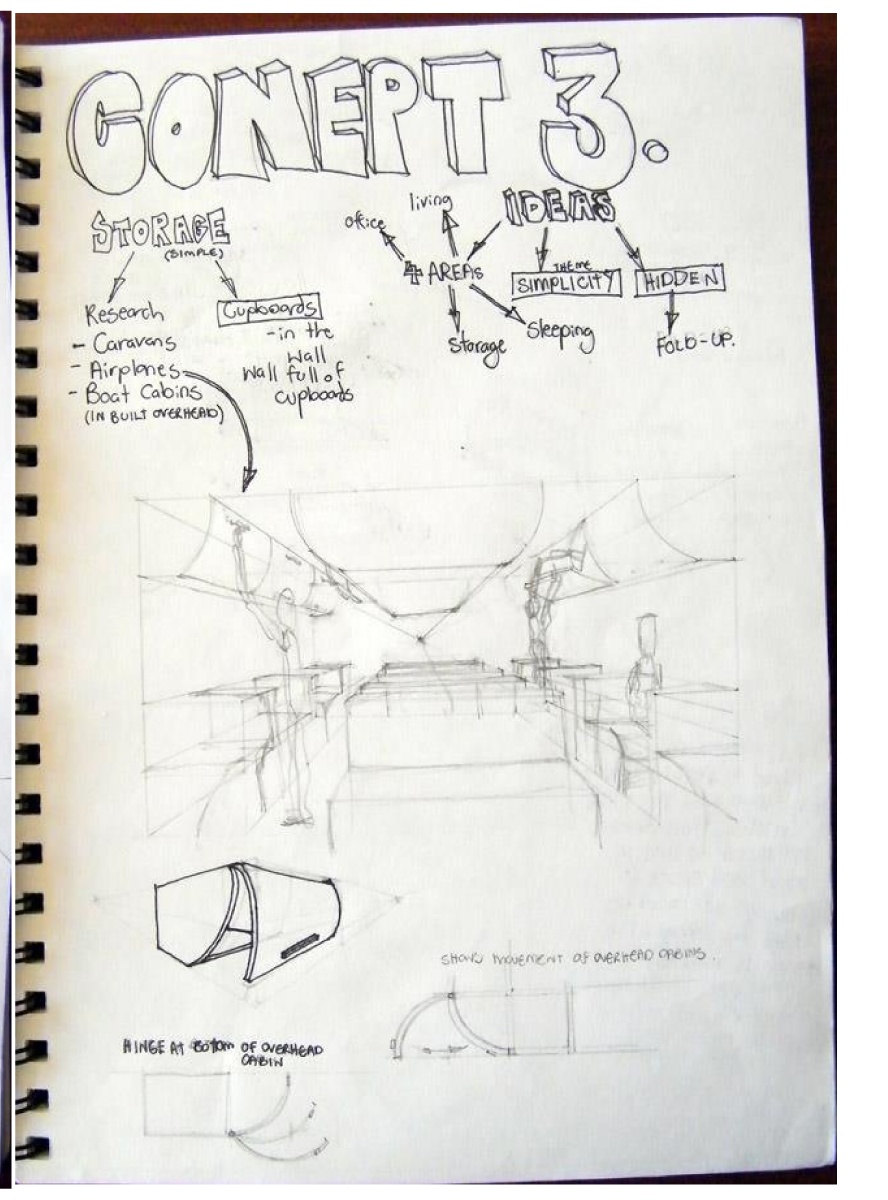 CONEPT 3.
STORAGE
(SIMPLE)
Research
- Caravans
- Airplanes
- Boat Cabins
(IN BUILT OVERHEAD)
Cupboards
- in the
wall
wall full of
cupboards
IDEAS
living
office
4 AREAS
Storage
Sleeping
THEME
SIMPLICITY
HIDDEN
FOLD-UP.
SHOWS MOVEMENT OF OVERHEAD CABINS.
HINGE AT BOTTOM OF OVERHEAD
CABIN